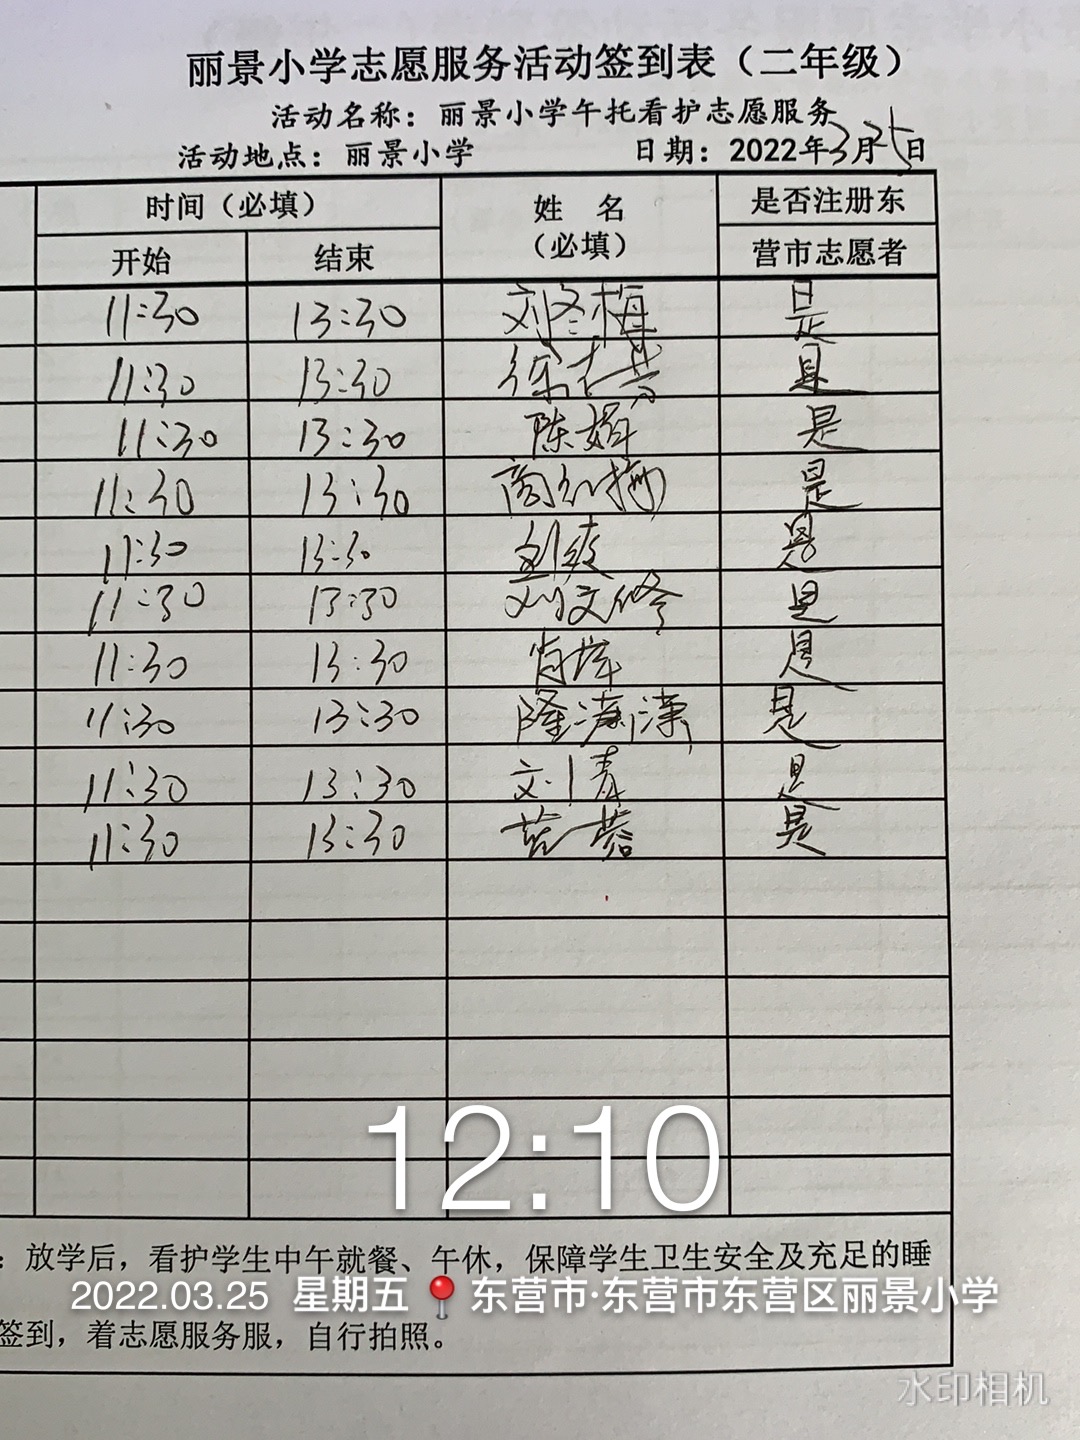 丽景小学志愿服务活动签到表（二年级）
活动名称：丽景小学午托看护志愿服务
活动地点：丽景小学 日期：2022年3月25日
时间（必填） 姓 名 （必填） 是否注册东营市志愿者
开始 结束
11:30 13:30 刘冬梅 是
11:30 13:30 徐 芳 是
11:30 13:30 陈娟 是
11:30 13:30 商红梅 是
11:30 13:30 刘 是
11:30 13:30 刘文修 是
11:30 13:30 肖 是
11:30 13:30 隆潇潇 是
11:30 13:30 刘倩 是
11:30 13:30 蓉 是
12:10
：放学后，看护学生中午就餐、午休，保障学生卫生安全及充足的睡
2022.03.25 星期五 东营市·东营市东营区丽景小学
签到，着志愿服务服，自行拍照。
水印相机